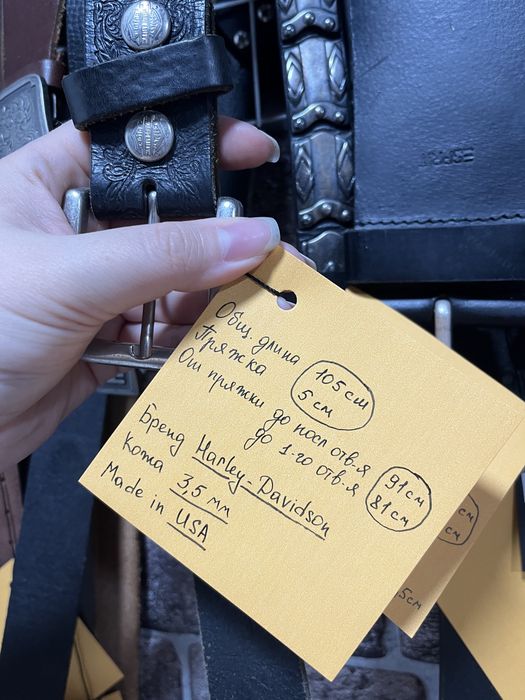 Общ. длина 105 см
Пряжка 5 см
От пряжки до посл отв-я 91 см
до 1-го отв-я 81 см
Бренд Harley-Davidson
Кожа 3,5 мм
Made in USA
см
см
5 см